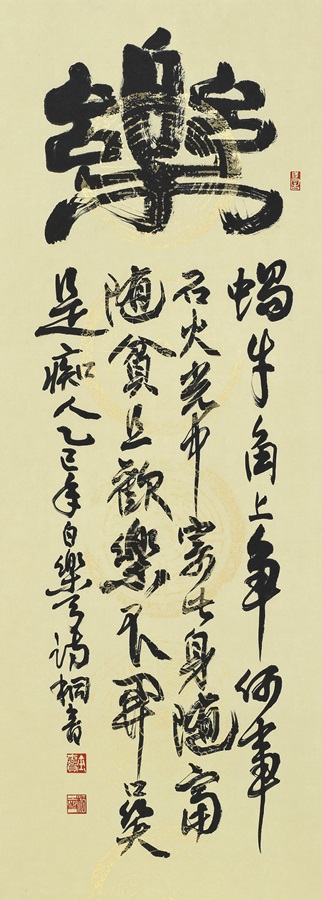 樂
蝸牛角上争何事
石火光中寄此身随富
随貧且歡樂不開口笑
是痴人乙巳年白樂天詩桐音